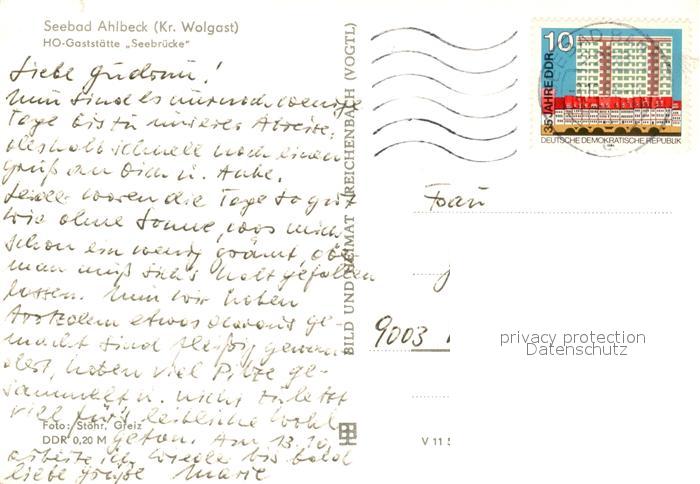 Seebad Ahlbeck (Kr. Wolgast)
HO-Gaststätte „Seebrücke"
Liebe Gudrun!
Nun sind es nur noch wenige
Tage bis zu unserer Abreise,
deshalb schnell noch einen
Gruß an Dich u. Anke.
Leider waren die Tage so gut
wie ohne Sonne, was mich
schon ein wenig grämt, aber
man muß sich's halt gefallen
lassen. Nun wir haben
trotzdem etwas daraus ge-
macht sind fleißig gewan-
dert, haben viel Pilze ge-
sammelt u. nicht zuletzt
viel für's leibliche Wohl
getan. Am 13.10.
arbeite ich wieder bis bald
liebe Grüße Marie
Foto: Stöhr, Greiz
DDR 0,20 M
BILD UND HEIMAT REICHENBACH (VOGTL)
V 11
10
35 JAHRE DDR
DEUTSCHE DEMOKRATISCHE REPUBLIK
Frau
9003
privacy protection
Datenschutz